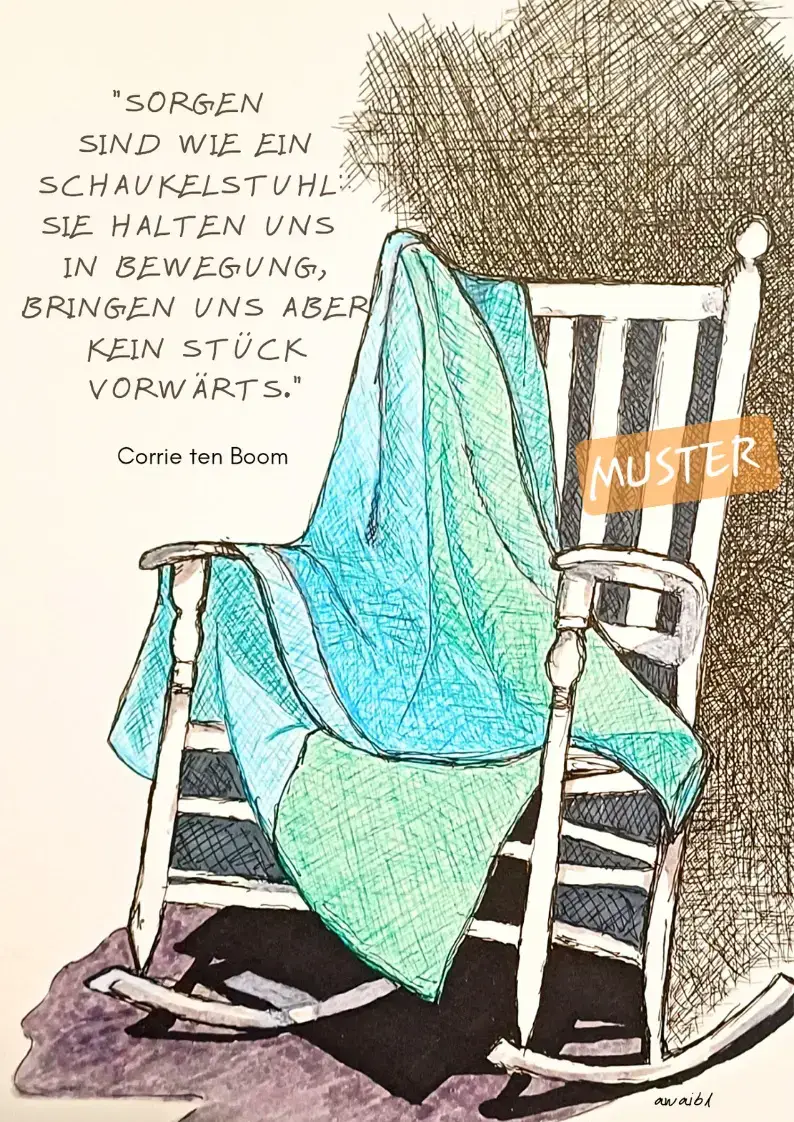 "SORGEN
SIND WIE EIN
SCHAUKELSTUHL:
SIE HALTEN UNS
IN BEWEGUNG,
BRINGEN UNS ABER
KEIN STÜCK
VORWÄRTS."
Corrie ten Boom
MUSTER
awaibl